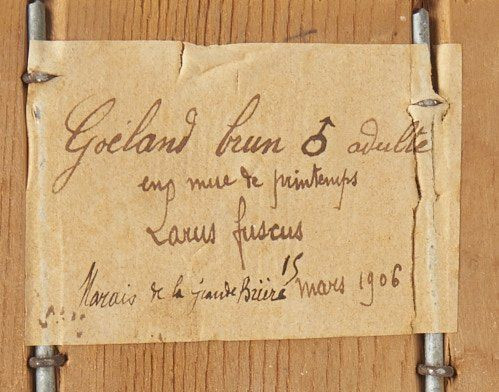 Goëland brun ♂ adulte
en mue de printemps
Larus fuscus
Marais de la grande Brière 15 mars 1906